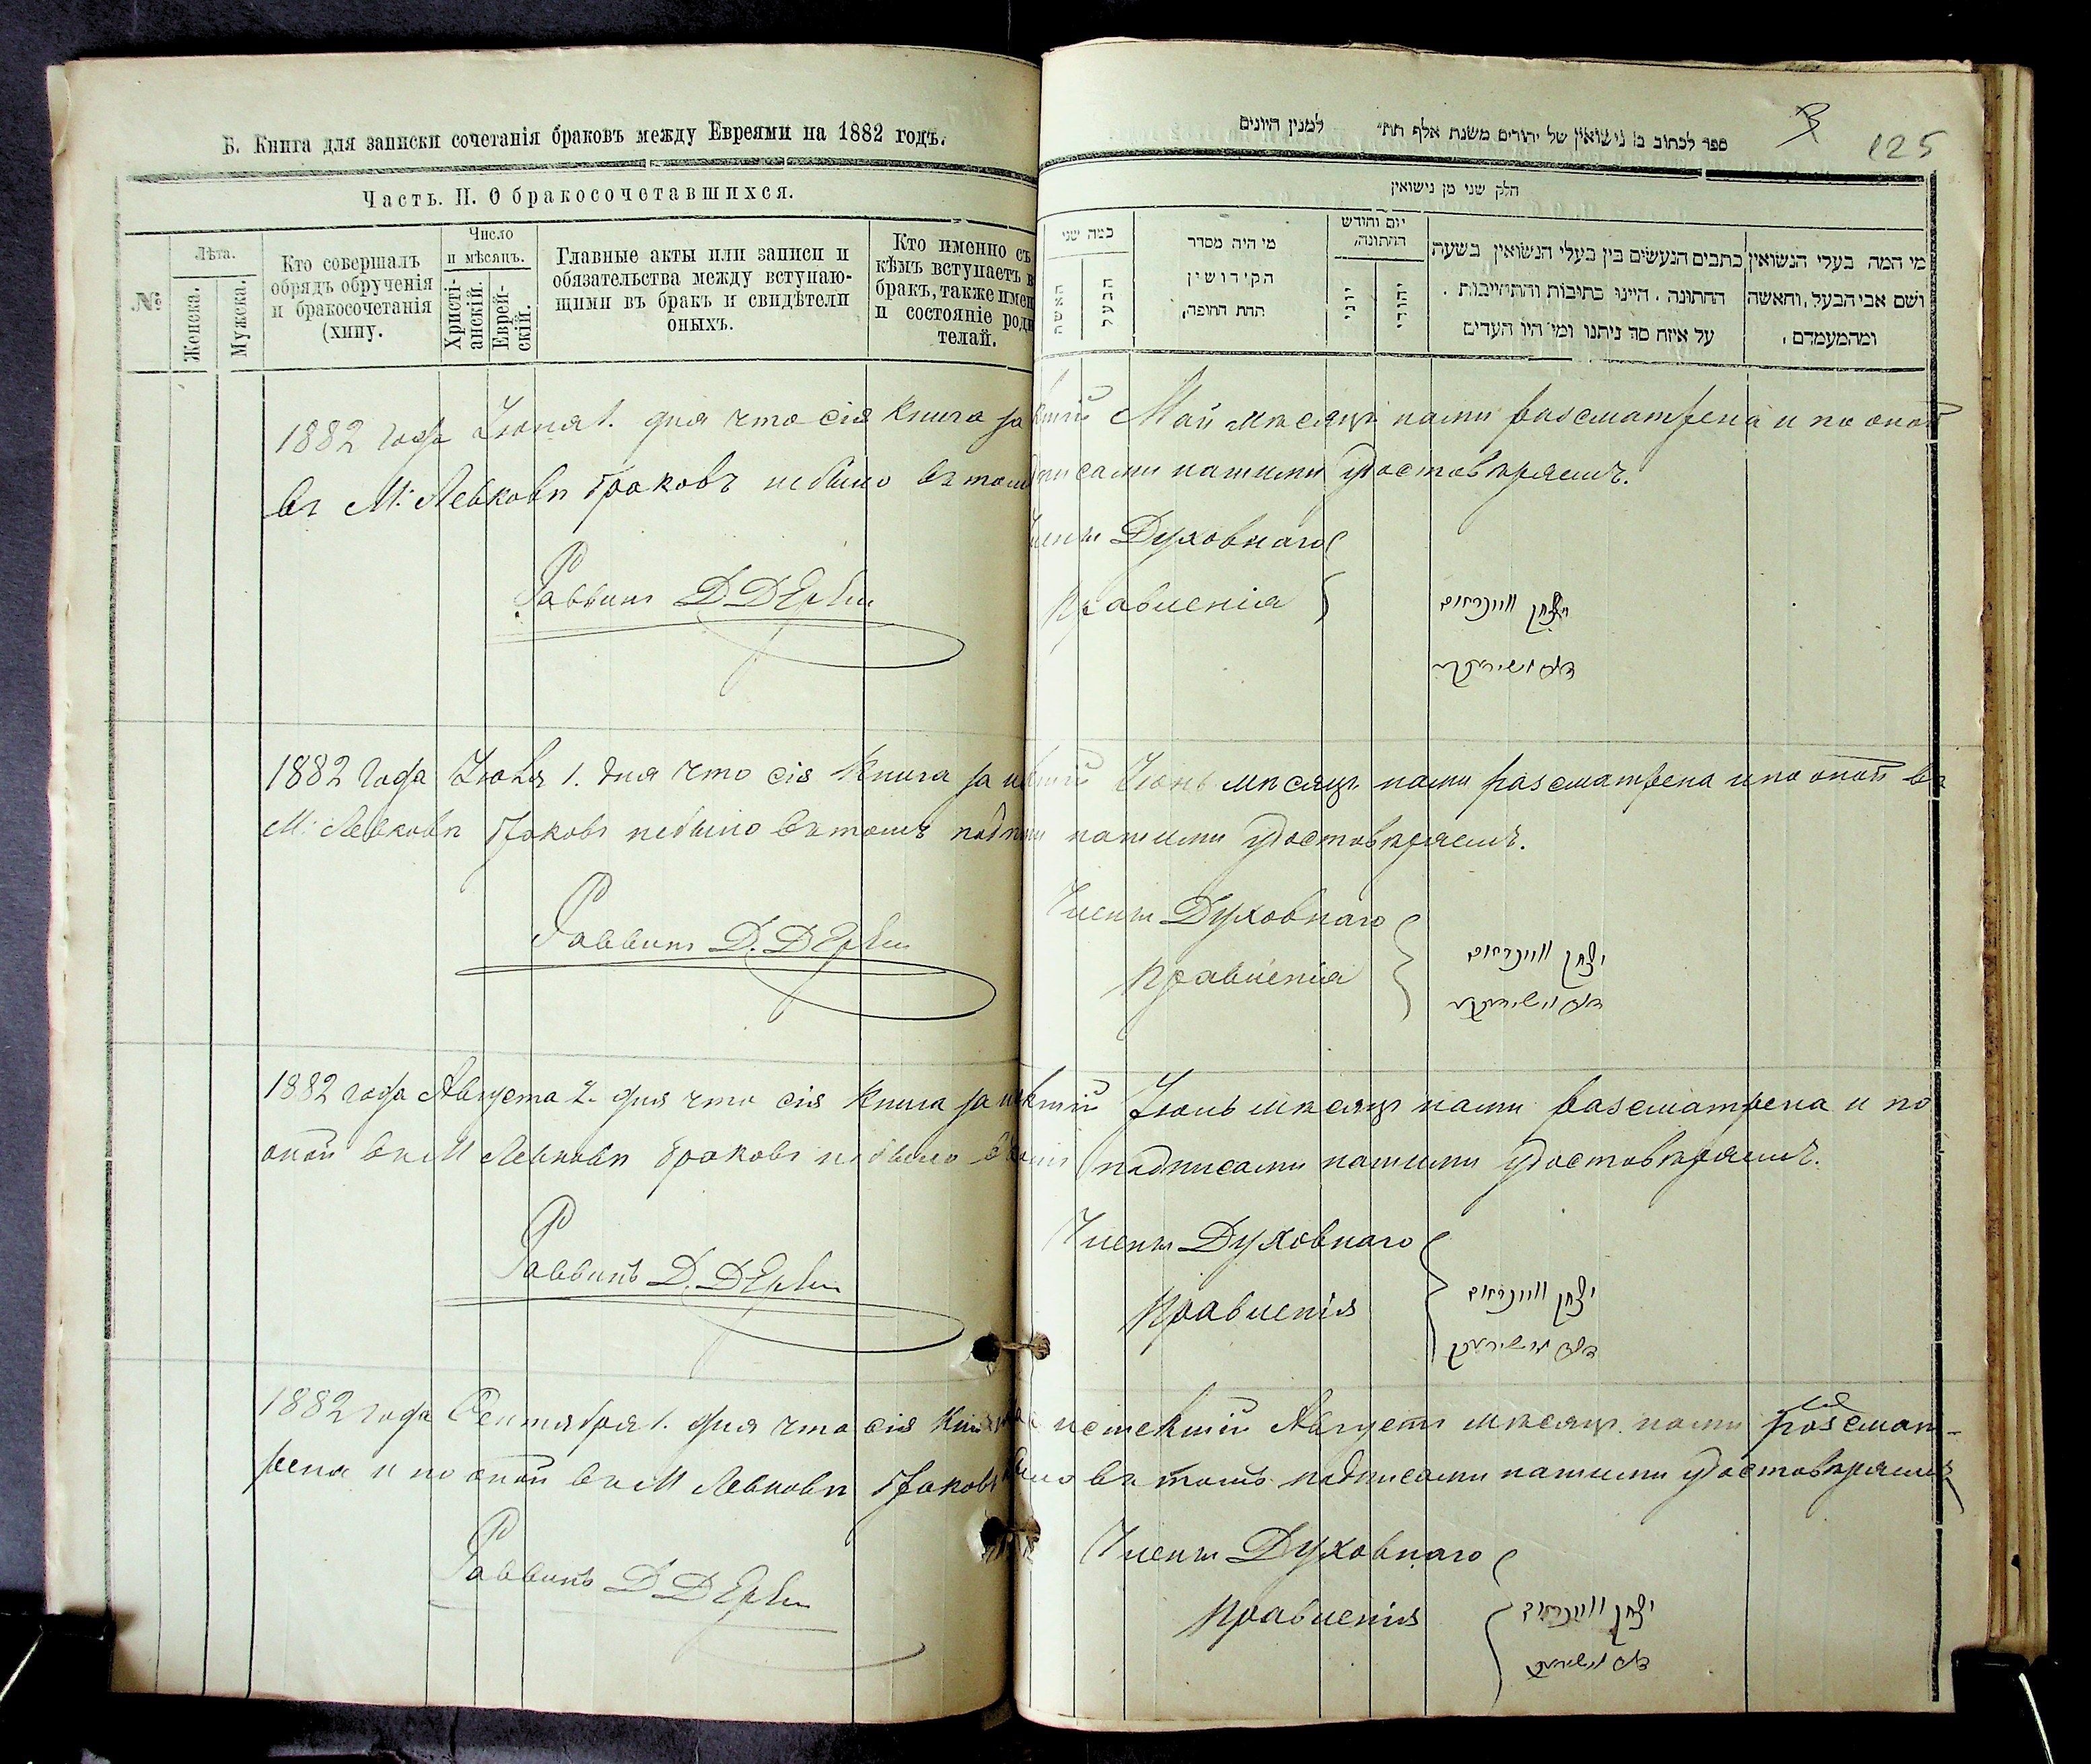 Б. Книга для записки сочетанія браковъ между Евреями на 1882 годъ.
Часть. II. О бракосочетавшихся.
№
Лѣта.
Женска.
Мужска.
Кто совершалъ
обрядъ обрученія
и бракосочетанія
(хипу.
Число
и мѣсяцъ.
Христі-
анскій.
Еврей-
скій.
Главные акты или записи и
обязательства между вступаю-
щими въ бракъ и свидѣтели
оныхъ.
Кто именно съ
кѣмъ вступаетъ в
бракъ, также имен
и состояніе роди
телай.
125
ספר לכתוב בו נישואין של יהודים משנת אלף תת״ למנין היונים
חלק שני מן נישואין
כמה שני
האשה
הבעל
מי היה מסדר
הקידושין
תחת החופה,
יום וחודש
החתונה,
יוני
יהודי
כתבים הנעשים בין בעלי הנשואין בשעה
החתונה . היינו כתובות והתחייבות .
על איזה סך ניתנו ומי היו העדים
מי המה בעלי הנשואין
ושם אבי הבעל, והאשה
ומהמעמדם .
1882 года Іюня 1. дня что сія книга за кшій Май мѣсяцъ нами разсматрена и по оной
въ М: Левковѣ браковъ небыло въ том писами нашими удостовѣряемъ.
Раввинъ Д.
Члены Духовнаго
правленія
יצחק
1882 года Іюля 1. дня что сія книга за Іюнь мѣсяцъ нами разсматрена и по оной въ
М: Левковѣ браковъ небыло въ томъ подпи нашими удостовѣряемъ.
Раввинъ Д.
Члены Духовнаго
правленія
יצחק
1882 года Августа 2. дня что сія книга за кшій Іюль мѣсяцъ нами разсматрена и по
оной въ М Левковѣ браковъ небыло подписами нашими удостовѣряемъ.
Раввинъ Д.
Члены Духовнаго
правленія
יצחק
1882 года Сентября 1. дня что сія истекшій Августъ мѣсяцъ нами разсмат-
рена и по оной въ М Левковѣ браковъ въ томъ подписами нашими удостовѣряемъ
Раввинъ Д
Члены Духовнаго
правленія
יצחק